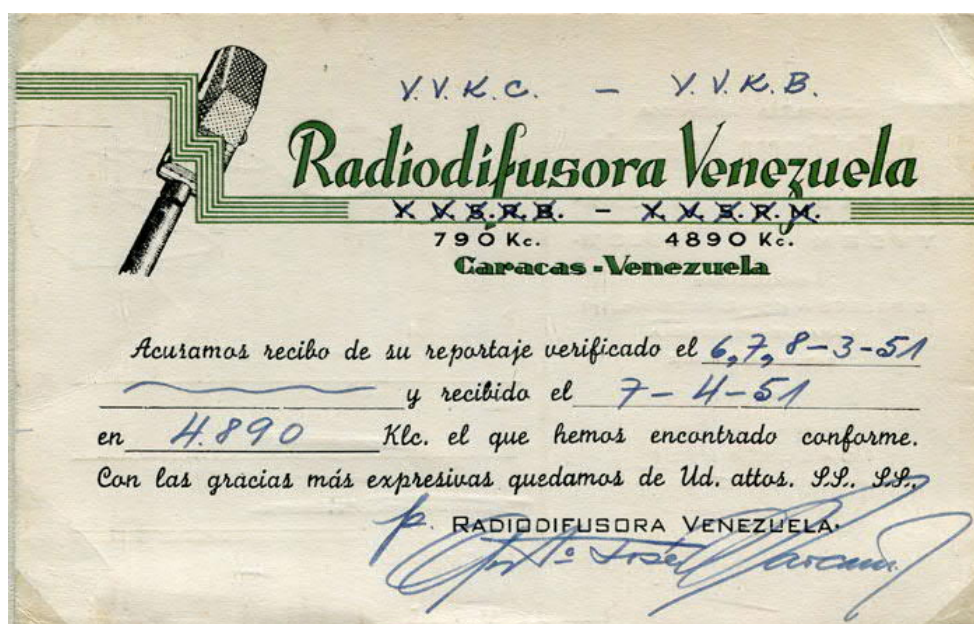 Y.V.K.C. — Y.V.K.B.
Radiodifusora Venezuela
Y.V.5.R.B. - Y.V.5.R.M.
790 Kc. 4890 Kc.
Caracas - Venezuela
Acusamos recibo de su reportaje verificado el 6,7,8-3-51
y recibido el 7-4-51
en 4.890 Klc. el que hemos encontrado conforme.
Con las gracias más expresivas quedamos de Ud. attos. SS. SS.,
p. RADIODIFUSORA VENEZUELA.
José